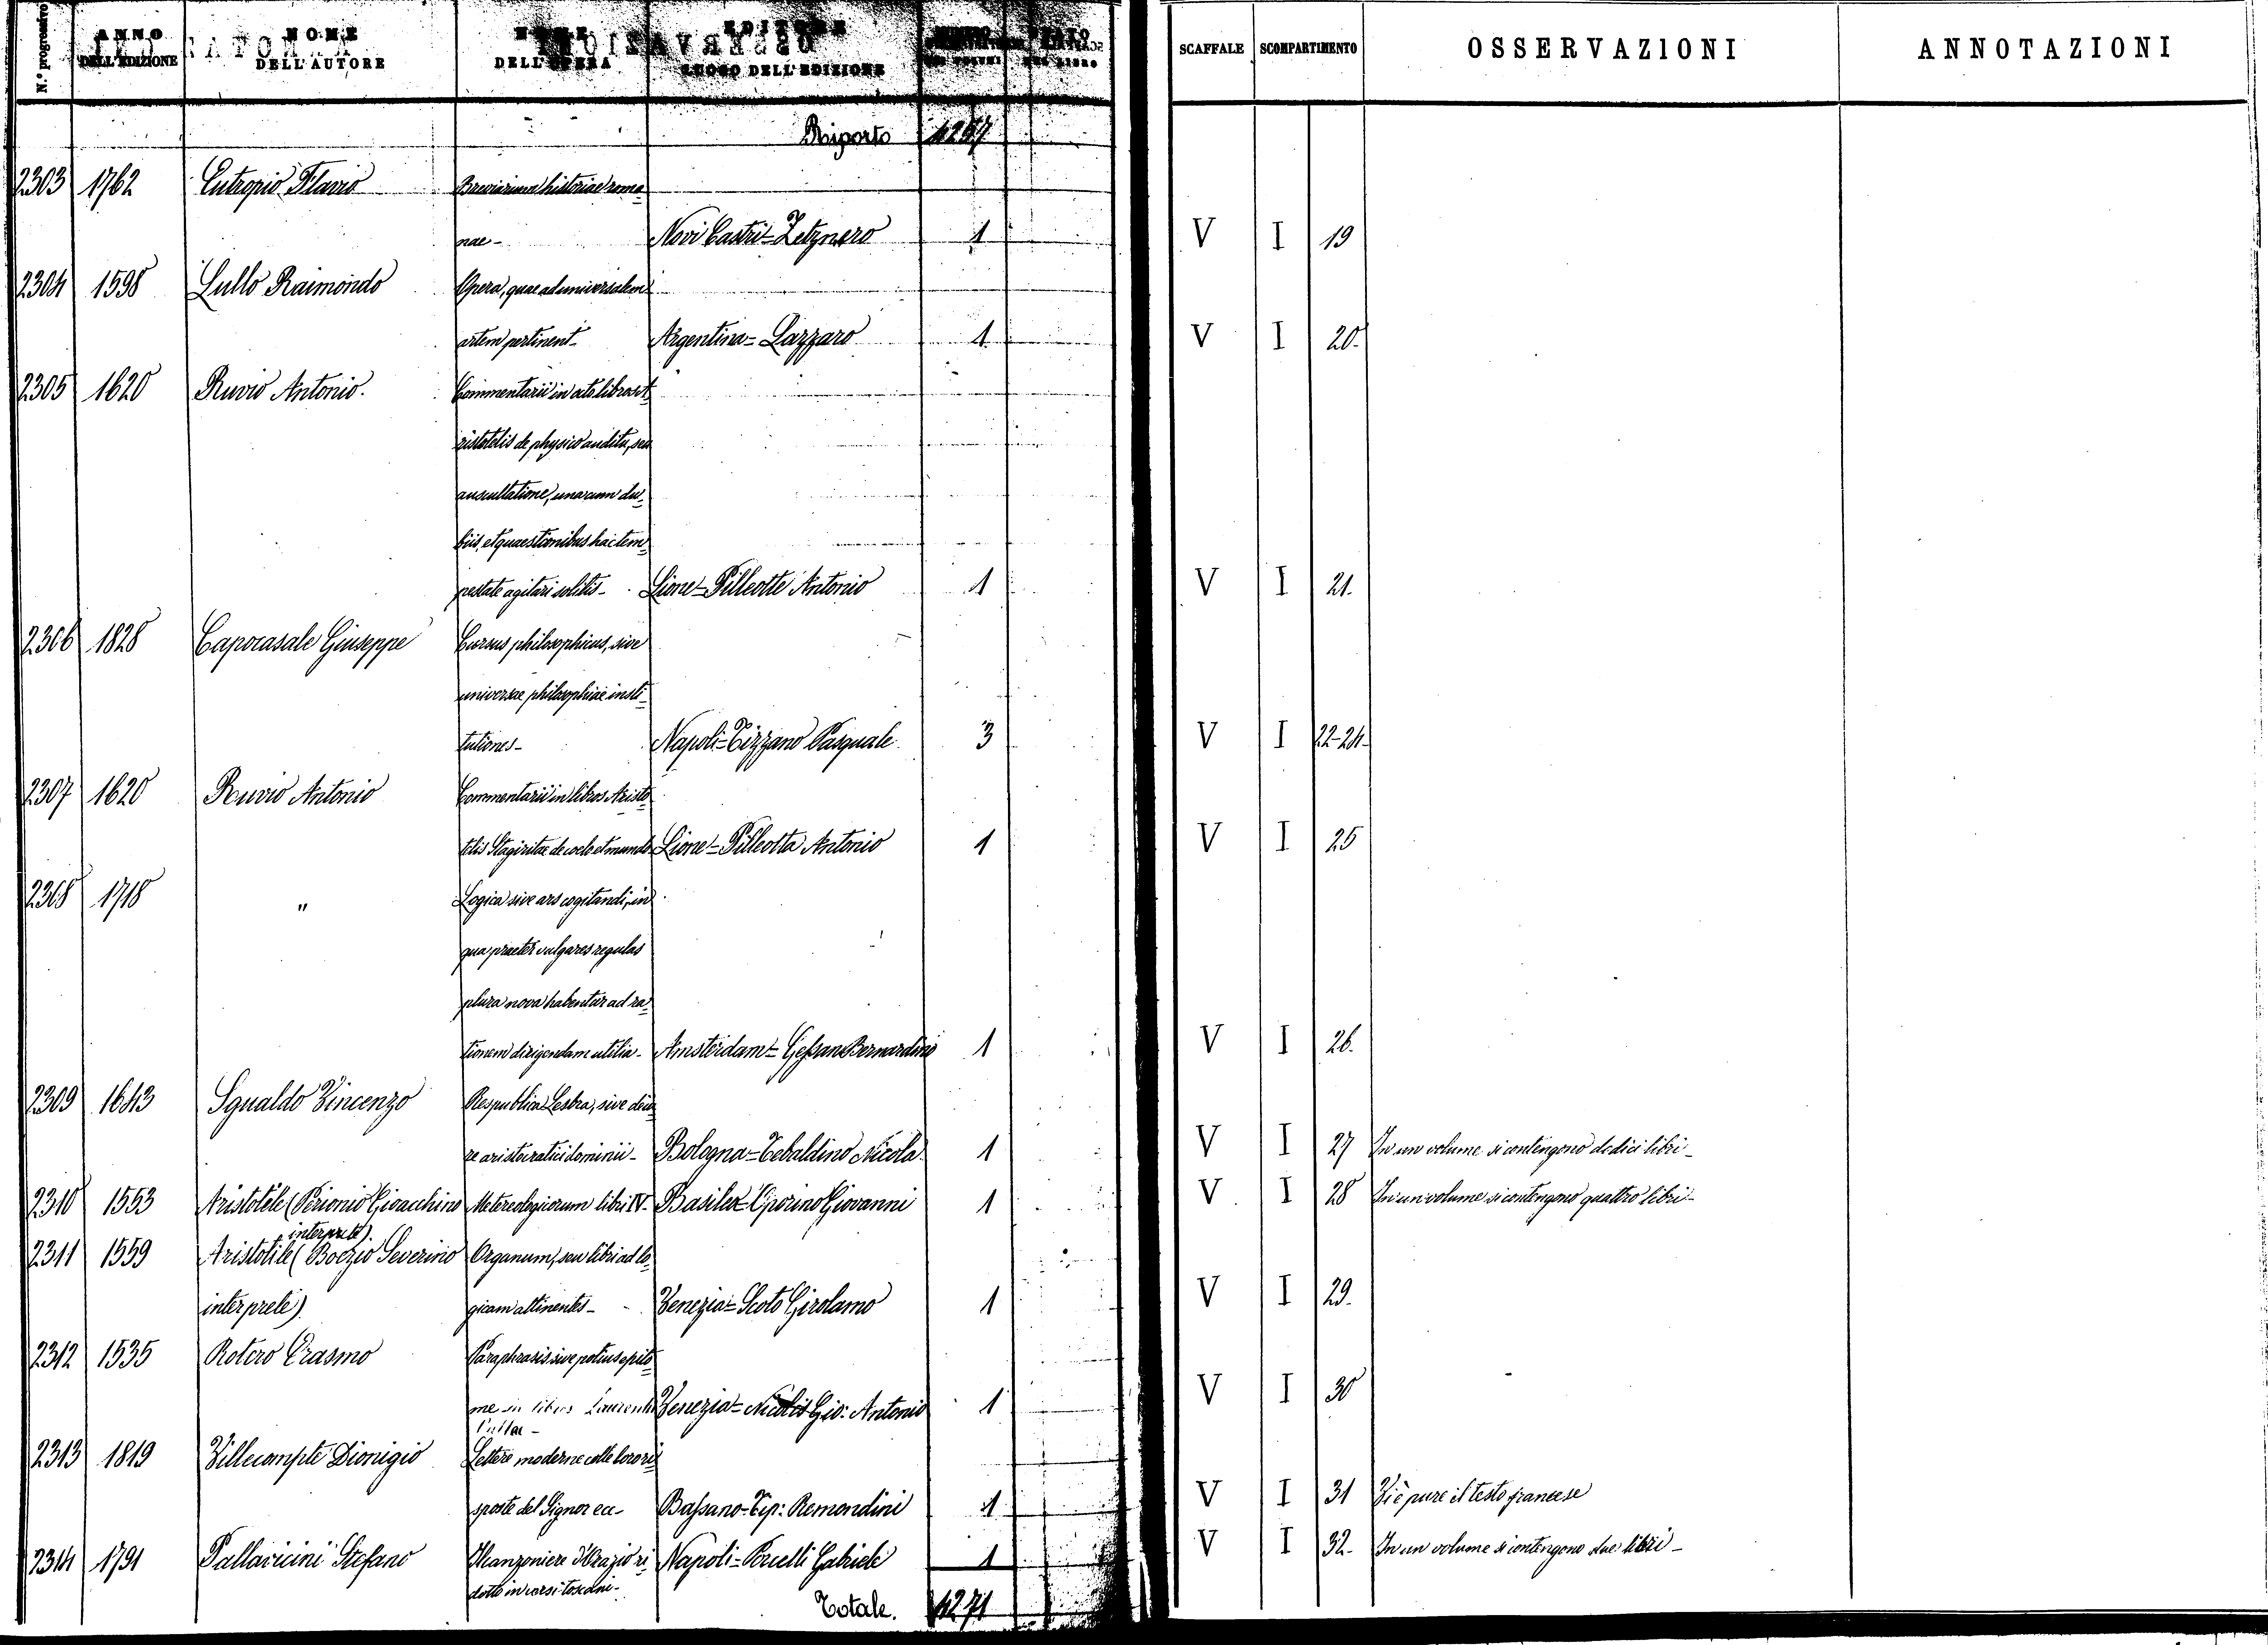 N.º progressivo
ANNO DELL'EDIZIONE
NOME DELL'AUTORE
DELL'OPERA
LUOGO DELL'EDIZIONE
SCAFFALE
SCOMPARTIMENTO
OSSERVAZIONI
ANNOTAZIONI
Riporto
2303 1762 Eutropio Flavio Breviarium historiae roma
nae - Novi Castri - Zetznero 1 V I 19
2304 1598 Lullo Raimondo Opera, quae ad universalem
artem pertinent - Argentina - Lazzaro 1 V I 20.
2305 1620 Ruvio Antonio. Commentarii in octo libros A
ristotelis de physico auditu, seu
auscultatione, una cum du-
biis, et quaestionibus hac tem
pestate agitari solitis - Lione - Pilleotte Antonio 1 V I 21.
2306 1828 Caporasale Giuseppe Cursus philosophicus, sive
universae philosophiae insti-
tutiones - Napoli - Tizzano Pasquale 3 V I 22-24.
2307 1620 Ruvio Antonio Commentarii in libros Aristo
telis Stagiritae de coelo et mundo Lione - Pilleotta Antonio 1 V I 25
2308 1718 " Logica sive ars cogitandi, in
qua praeter vulgares regulas
plura nova habentur ad ra-
tionem dirigendam utilia - Amsterdam - Gessari Bernardino 1 V I 26.
2309 1643 Sgualdo Vincenzo Respublica Lesbia, sive
aristocratici dominii - Bologna - Tebaldino Nicola 1 V I 27 In un volume si contengono dodici libri -
2310 1553 Aristotele (Perionio Gioacchino interprete). Metereologicorum libri IV - Basilea - Oporino Giovanni 1 V I 28 In un volume si contengono quattro libri -
2311 1559 Aristotile (Boezio Severino Organum, seu libri ad lo-
interprete) gicam attinentes - Venezia - Scoto Girolamo 1 V I 29.
2312 1535 Rotero Erasmo Paraphrasis sive potius epito
me in libros Laurentii Vallae - Venezia - Nicolis Gio: Antonio 1 V I 30
2313 1819 Villecompte Dionigio Lettere moderne colle loro ri
sposte del Signor ecc - Bassano - Tip: Remondini 1 V I 31 Vi è pure il testo francese
2314 1791 Pallavicini Stefano Il canzoniere d'Orazio ri Napoli - Porcelli Gabriele 1 V I 32. In un volume si contengono due libri -
dotto in versi toscani -
Totale. 4271